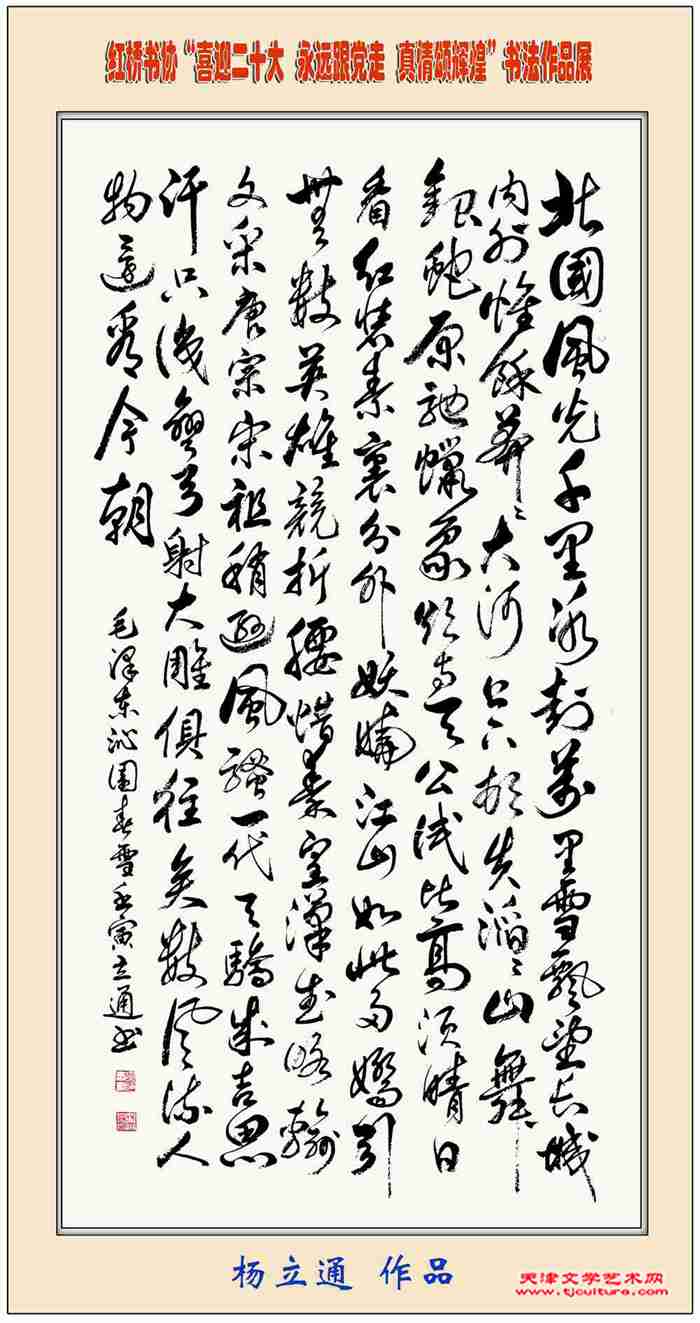 红桥书协“喜迎二十大 永远跟党走 真情颂辉煌”书法作品展
北國風光千里冰封萬里雪飄望长城
内外惟餘莽〻大河上下頓失滔〻山舞
銀蛇原馳蠟象欲与天公試比高須晴日
看紅裝素裹分外妖嬈江山如此多嬌引
無數英雄競折腰惜秦皇漢武略輸
文采唐宗宋祖稍遜風騷一代天驕成吉思
汗只識彎弓射大雕俱往矣數風流人
物還看今朝
毛澤東沁園春雪壬寅立通书
杨立通 作品
天津文学艺术网
www.tjculture.com